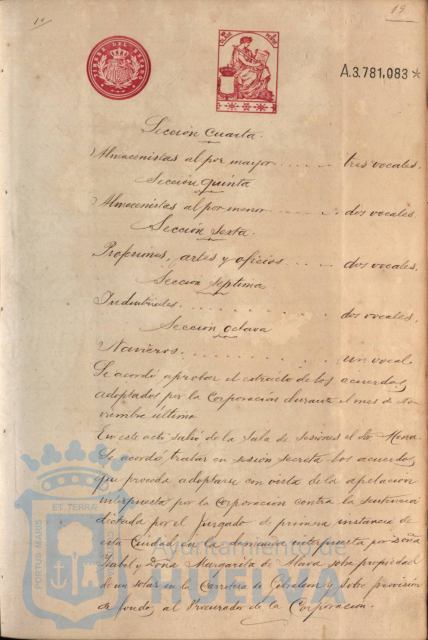 19
19
TIMBRE DEL ESTADO
A.3.781,083*
Sección Cuarta.
Almacenistas al por mayor . . . . tres vocales.
Sección quinta
Almacenistas al por menor . . . . dos vocales.
Sección sexta.
Profesiones, artes y oficios . . . . dos vocales.
Sección septima
Industriales . . . . . . . . dos vocales.
Sección octava
Navieros . . . . . . . . un vocal.
Se acordó aprobar el extracto de los acuerdos
adoptados por la Corporación durante el mes de No-
viembre último.
En este acto salió de la Sala de Sesiones el Sr. Mora.
Se acordó tratar en sesión secreta los acuerdos
que proceda adoptarse con vista de la apelación
interpuesta por la Corporación contra la sentencia
dictada por el Juzgado de primera instancia de
esta Ciudad en la demanda interpuesta por Doña
Isabel y Doña Margarita de Mora sobre propiedad
de un solar en la Carretera de y sobre provisión
de fondos al Procurador de la Corporación.
PORTUS MARIS
ET TERRAE
Ayuntamiento de
HUELVA